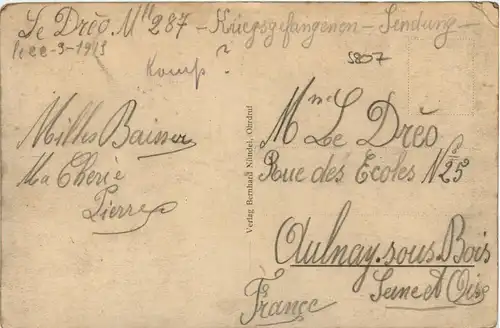 Le Dréo. Mle 287 - Kriegsgefangenen - Sendung -
-3-1915
Komp ?
5807
Milles Baiser
Ma Cherie
Pierre
Verlag Bernhach Nündel, Ohrdruf
Mme Le Dréo
Rue des Ecoles No 25
Aulnay-sous Bois
Seine et Oise
France